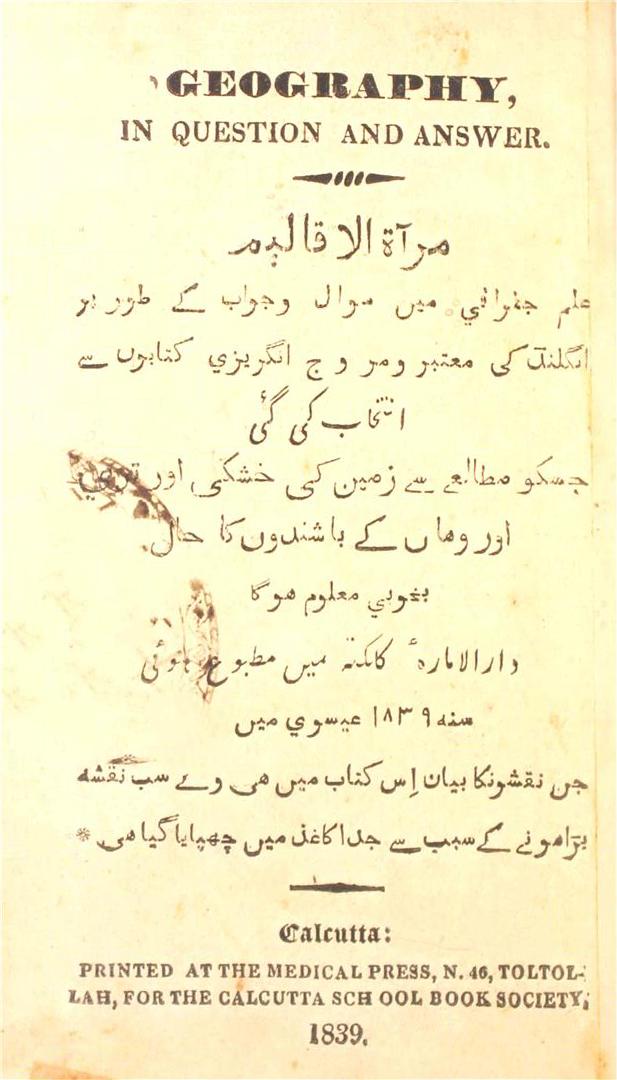 GEOGRAPHY,
IN QUESTION AND ANSWER.
مرآة الاقالیم
علم جغرافي میں سوال وجواب کے طور پر
انگلنڈ کی معتبر ومروج انگریزي کتابوں سے
انتخاب کی گئی
جسکو مطالعے سے زمین کی خشکی اور تري
اور وهاں کے باشندوں کا حال
بخوبي معلوم هوگا
دار الامارہٴ کلکتہ میں مطبوع هوئی
سنه ۱۸۳۹ عیسوي میں
جن نقشونکا بیان اِس کتاب میں هی وے سب نقشه
بڑا هونے کے سبب سے جدا کاغذ میں چھپایا گیا هی *
Calcutta:
PRINTED AT THE MEDICAL PRESS, N. 46, TOLTOL-
LAH, FOR THE CALCUTTA SCHOOL BOOK SOCIETY,
1839.